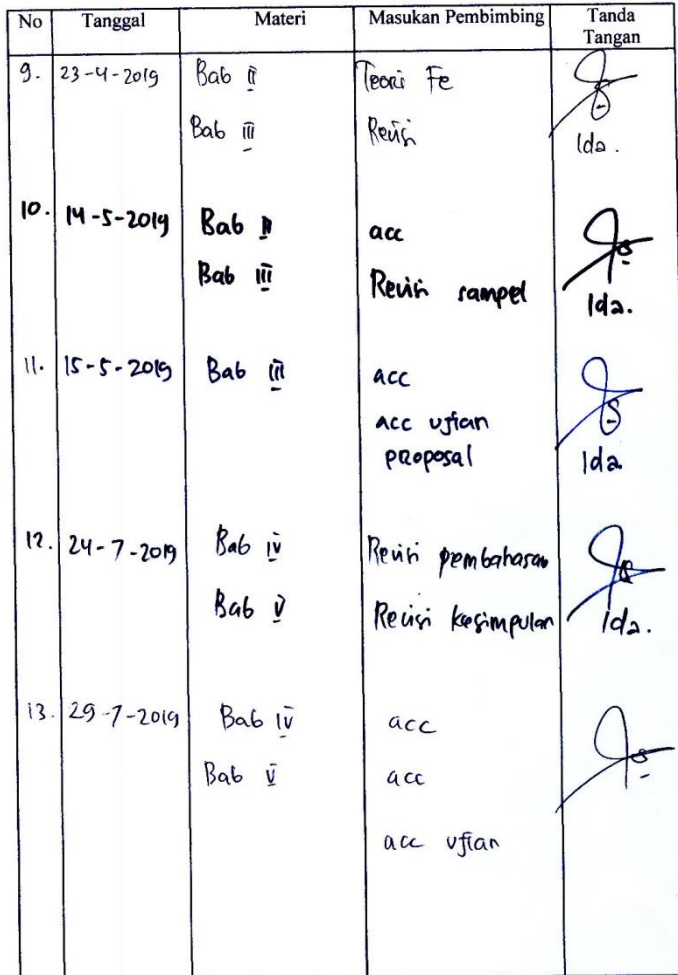 No Tanggal Materi Masukan Pembimbing Tanda Tangan
9. 23-4-2019 Bab II Teori Fe
Bab III Revisi Ida.
10. 14-5-2019 Bab II acc
Bab III Revisi sampel Ida.
11. 15-5-2019 Bab III acc
acc ujian
proposal Ida
12. 24-7-2019 Bab IV Revisi pembahasan
Bab V Revisi kesimpulan Ida.
13. 29-7-2019 Bab IV acc
Bab V acc
acc ujian